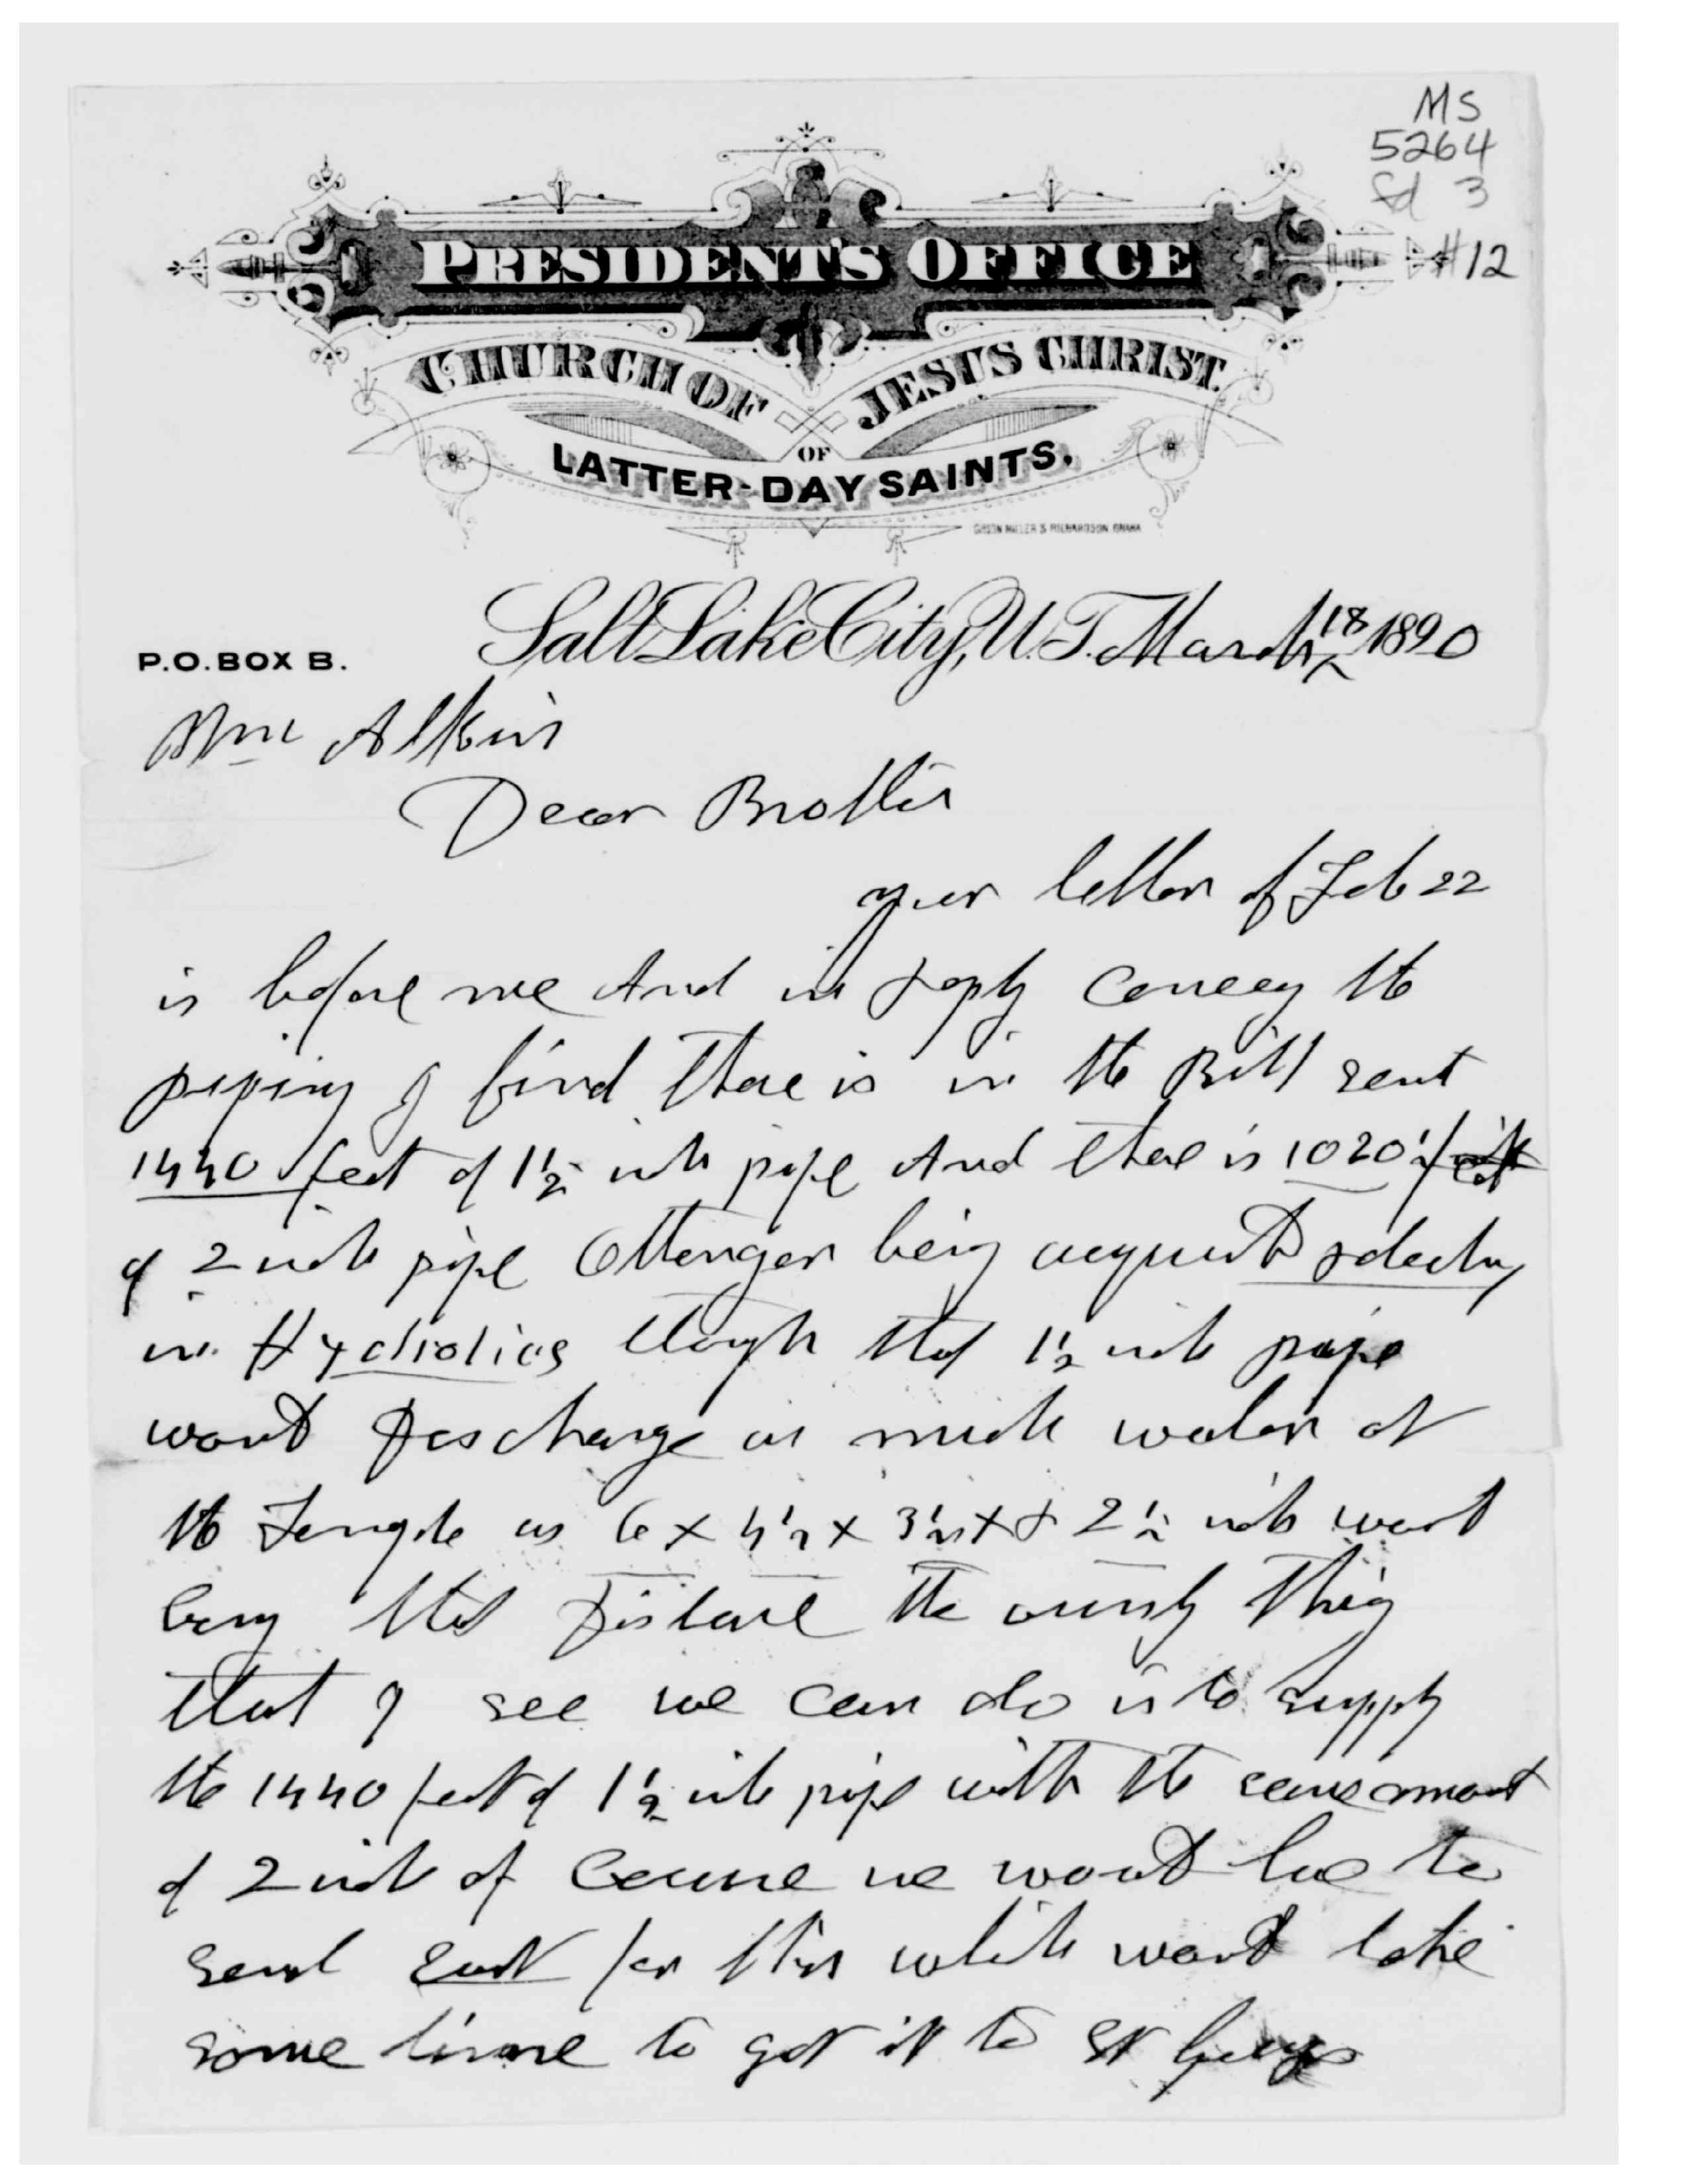 MS
5264
fd 3
#12
PRESIDENT'S OFFICE
CHURCH OF JESUS CHRIST
OF
LATTER-DAY SAINTS.
P.O. BOX B.
Salt Lake City, U.T. March 18 1890
Wm Atkin
Dear Brother
your letter of Feb 22
is before me And in reply the
piping I find there is in the Bill sent
1440 feet of 1½ inch pipe And there is 1020
of 2 inch pipe Ottenger being
in Hydrolics that 1½ inch pipe
discharge as much water at
the Temple as 6 x 4½ x 3½ x & 2½ inch
that Distance the thing
that I see we can do is to supply
the 1440 feet of 1½ inch pipe with the same amount
of 2 inch of Course we would have to
send East for this which would take
some time to get it to St George